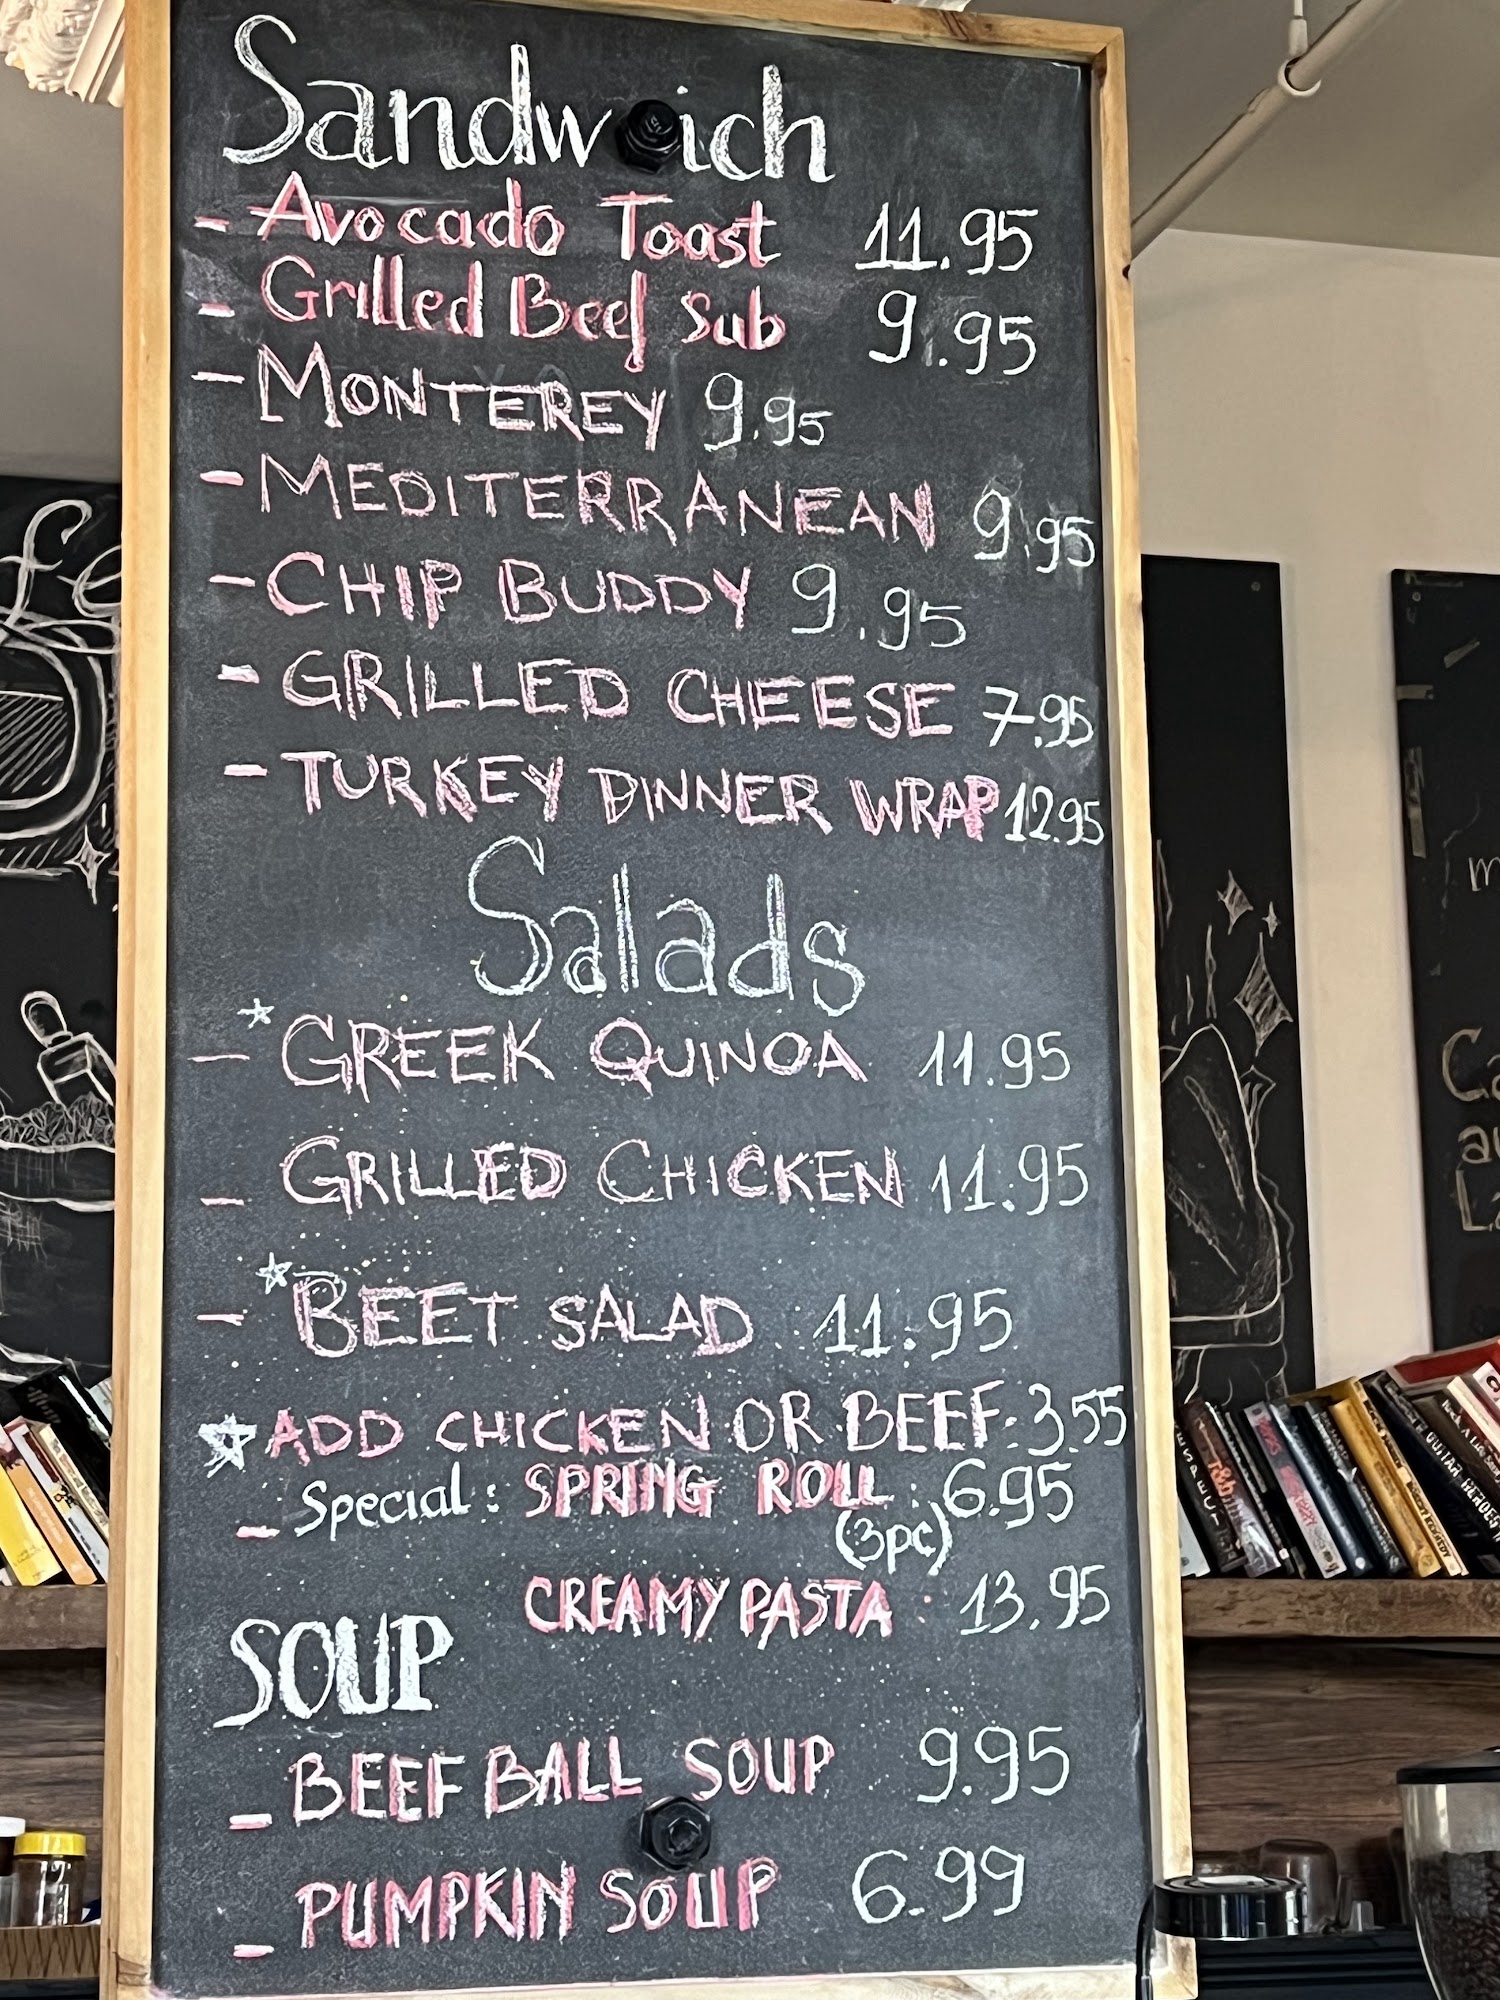 Sandwich
- Avocado Toast 11.95
- Grilled Beef Sub 9.95
- MONTEREY 9.95
- MEDITERRANEAN 9.95
- CHIP BUDDY 9.95
- GRILLED CHEESE 7.95
- TURKEY DINNER WRAP 12.95
Salads
- *GREEK QUINOA 11.95
- GRILLED CHICKEN 11.95
- *BEET SALAD 11.95
☆ ADD CHICKEN OR BEEF: 3.55
- Special: SPRING ROLL: 6.95
(3pc)
CREAMY PASTA: 13.95
SOUP
- BEEF BALL SOUP 9.95
- PUMPKIN SOUP 6.99
GUITAR HEROES